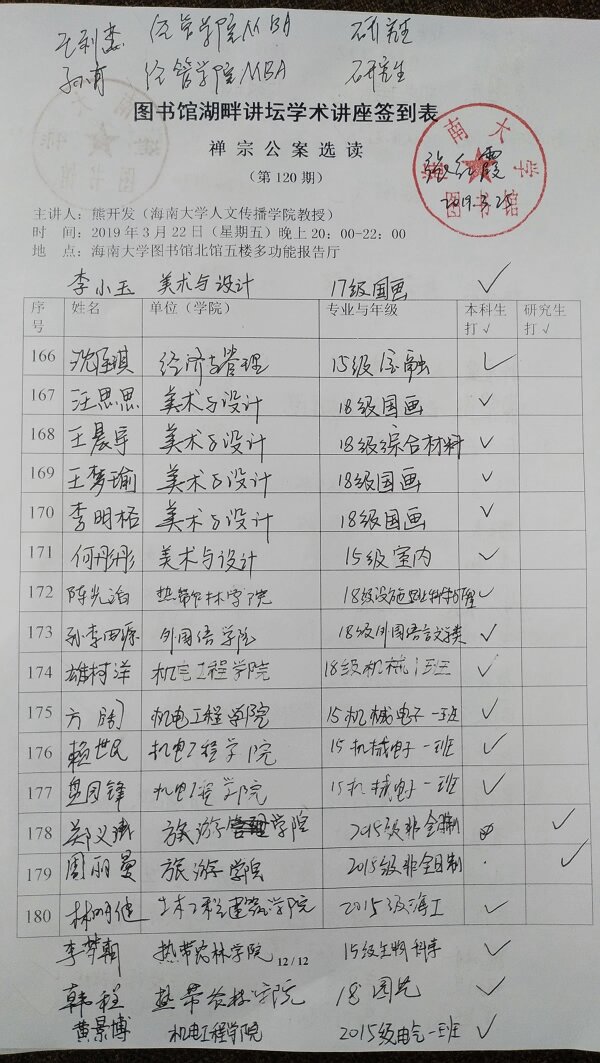 经管学院MBA 研究生
孙育 经管学院MBA 研究生
图书馆湖畔讲坛学术讲座签到表
禅宗公案选读
（第 120 期）
海南大学
图书馆
张红霞
2019.3.25
主讲人：熊开发（海南大学人文传播学院教授）
时 间：2019 年 3 月 22 日（星期五）晚上 20：00-22：00
地 点：海南大学图书馆北馆五楼多功能报告厅
李小玉 美术与设计 17级国画 ✓
序号 姓名 单位（学院） 专业与年级 本科生打√ 研究生打√
166 经济与管理 15级金融 ✓
167 汪思思 美术与设计 18级国画 ✓
168 王晨宇 美术与设计 18级综合材料 ✓
169 王梦瑜 美术与设计 18级国画 ✓
170 李明格 美术与设计 18级国画 ✓
171 何彤彤 美术与设计 15级室内 ✓
172 陈光治 热带作林学院 ✓
173 孙李田源 外国语学院 18级外国语言文学类 ✓
174 雄村洋 机电工程学院 18级机械1班 ✓
175 方 机电工程学院 15机械电子一班 ✓
176 赖世民 机电工程学院 15机械电子一班 ✓
177 机电工程学院 15机械电子一班 ✓
178 郑义 旅游学院 2015级非全日制 ✓
179 周丽曼 旅游学院 2015级非全日制 ✓
180 林明健 土木工程建筑学院 2015级海工 ✓
李梦朝 热带农林学院 15级生物科学 ✓
12 / 12
韩程 热带农林学院 18园艺 ✓
黄景博 机电工程学院 2015级电气一班 ✓